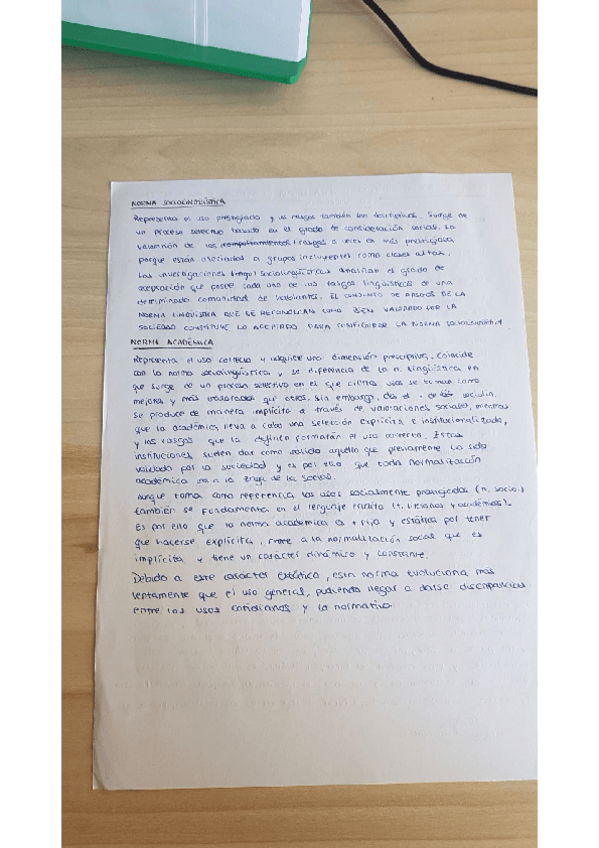 NORMA SOCIOLINGÜÍSTICA
Representa el uso prestigiado y sus rasgos también son descriptivos. Surge de
un proceso selectivo basado en el grado de consideración social. La
valoración de los comportamientos / rasgos a veces es más prestigiosa
porque están asociados a grupos influyentes como clases altas.
Las investigaciones sociolingüísticas analizan el grado de
aceptación que posee cada uno de los rasgos lingüísticos de una
determinada comunidad de hablantes. EL CONJUNTO DE RASGOS DE LA
NORMA LINGÜÍSTICA QUE SE RECONOZCAN COMO BIEN VALORADO POR LA
SOCIEDAD CONSTITUYE LO ACEPTADO PARA CONFIGURAR LA NORMA
NORMA ACADÉMICA
Representa el uso correcto y adquiere una dimensión prescriptiva. Coincide
con la norma sociolingüística y se diferencia de la n. lingüística en
que surge de un proceso selectivo en el que ciertos usos se toman como
mejores y más valorados que otros. Sin embargo, de la sociolin.
se produce de manera implícita a través de valoraciones sociales, mientras
que la académica lleva a cabo una selección explícita e institucionalizada,
y los rasgos que la definen formarán el uso correcto. Estas
instituciones suelen dar como válido aquello que previamente ha sido
validado por la sociedad y es por ello que toda normalización
académica va a la de la social.
Aunque toma como referencia los usos socialmente prestigiados (n. socio.)
también se fundamenta en el lenguaje escrito (t. literarios y académicos).
Es por ello que la norma académica es + fija y estática por tener
que hacerse explícita, frente a la normalización social que es
implícita y tiene un carácter dinámico y constante.
Debido a este carácter estático, esta norma evoluciona más
lentamente que el uso general, pudiendo llegar a darse discrepancias
entre los usos cotidianos y lo normativo.